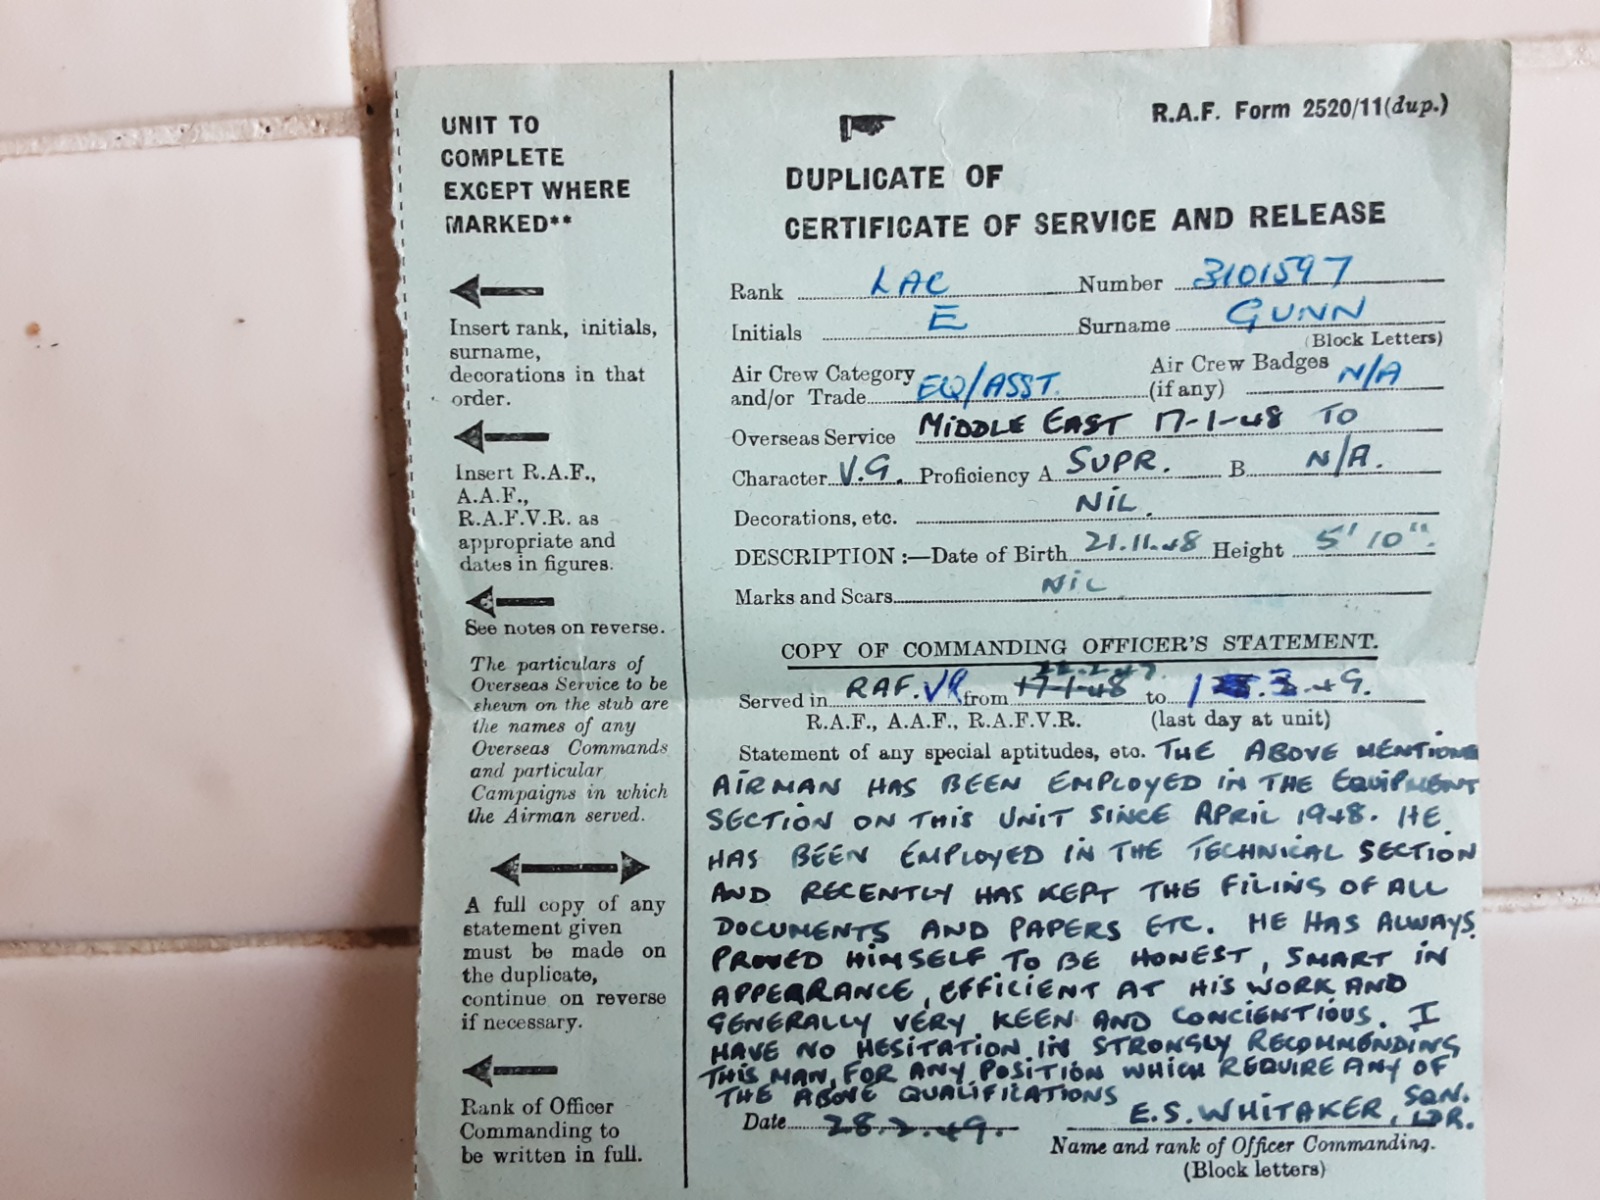 UNIT TO
COMPLETE
EXCEPT WHERE
MARKED**
Insert rank, initials,
surname,
decorations in that
order.
Insert R.A.F.,
A.A.F.,
R.A.F.V.R. as
appropriate and
dates in figures.
See notes on reverse.
The particulars of
Overseas Service to be
shewn on the stub are
the names of any
Overseas Commands
and particular
Campaigns in which
the Airman served.
A full copy of any
statement given
must be made on
the duplicate,
continue on reverse
if necessary.
Rank of Officer
Commanding to
be written in full.
R.A.F. Form 2520/11(dup.)
DUPLICATE OF
CERTIFICATE OF SERVICE AND RELEASE
Rank LAC Number 3101597
Initials E Surname GUNN
(Block Letters)
Air Crew Category Air Crew Badges
and/or Trade EQ/ASST. (if any) N/A
Overseas Service MIDDLE EAST 17-1-48 TO
Character V.G. Proficiency A SUPR. B N/A.
Decorations, etc. NIL.
DESCRIPTION :—Date of Birth 21.11.48 Height 5' 10".
Marks and Scars NIL
COPY OF COMMANDING OFFICER'S STATEMENT.
Served in RAF.VR from 17-1-48 to 1 .3.49.
R.A.F., A.A.F., R.A.F.V.R. (last day at unit)
Statement of any special aptitudes, etc. THE ABOVE MENTIONED
AIRMAN HAS BEEN EMPLOYED IN THE EQUIPMENT
SECTION ON THIS UNIT SINCE APRIL 1948. HE
HAS BEEN EMPLOYED IN THE TECHNICAL SECTION
AND RECENTLY HAS KEPT THE FILING OF ALL
DOCUMENTS AND PAPERS ETC. HE HAS ALWAYS
PROVED HIMSELF TO BE HONEST, SMART IN
APPEARANCE, EFFICIENT AT HIS WORK AND
GENERALLY VERY KEEN AND CONCIENTIOUS. I
HAVE NO HESITATION IN STRONGLY RECOMMENDING
THIS MAN, FOR ANY POSITION WHICH REQUIRE ANY OF
THE ABOVE QUALIFICATIONS
E.S. WHITAKER, SQN. LDR.
Date 28.2.49.
Name and rank of Officer Commanding.
(Block letters)